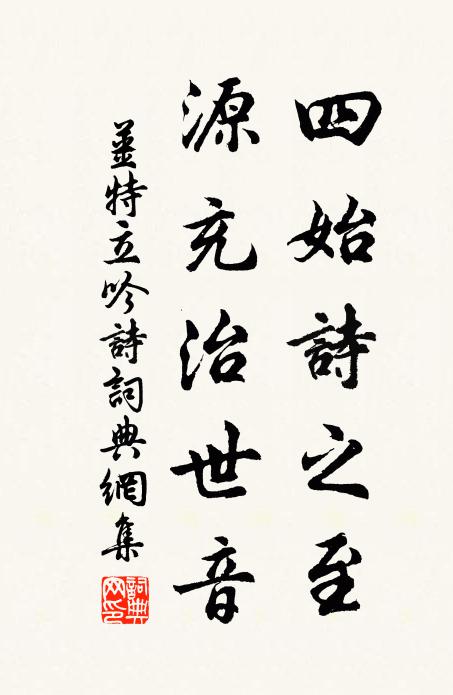 四始詩之至
源充治世音
姜特立吟詩詞典網集
詞典
网印